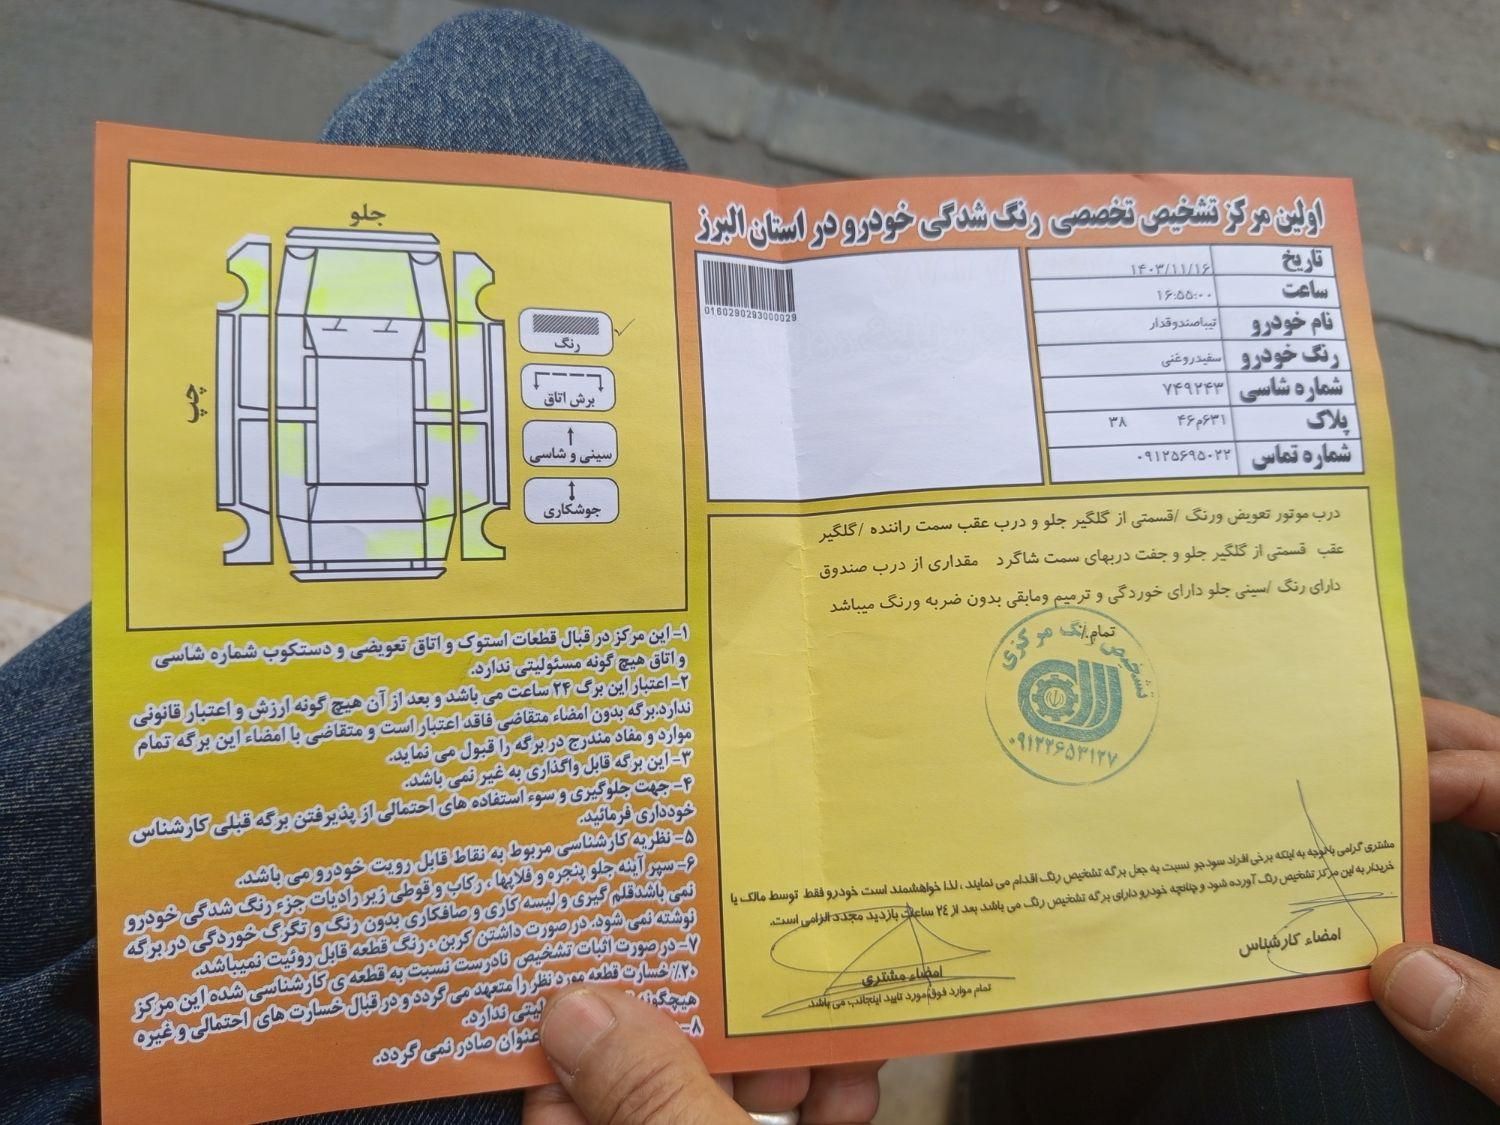 اولین مرکز تشخیص تخصصی رنگ شدگی خودرو در استان البرز
تاریخ ۱۴۰۳/۱۱/۱۶
ساعت ۱۶:۵۵:۰۰
نام خودرو تیباصندوقدار
رنگ خودرو سفیدروغنی
شماره شاسی ۷۴۹۲۴۳
پلاک ۶۳۱م۴۶ ۳۸
شماره تماس ۰۹۱۲۵۶۹۵۰۲۲
0160290293000029
درب موتور تعویض ورنگ /قسمتی از گلگیر جلو و درب عقب سمت راننده /گلگیر
عقب قسمتی از گلگیر جلو و جفت دربهای سمت شاگرد مقداری از درب صندوق
دارای رنگ /سینی جلو دارای خوردگی و ترمیم ومابقی بدون ضربه ورنگ میباشد
تمام./
تشخیص رنگ مرکزی
۰۹۱۲۲۶۵۳۱۲۷
مشتری گرامی باتوجه به اینکه برخی افراد سودجو نسبت به جعل برگه تشخیص رنگ اقدام می نمایند ، لذا خواهشمند است خودرو فقط توسط مالک یا
خریدار به این مرکز تشخیص رنگ آورده شود و چنانچه خودرو دارای برگه تشخیص رنگ می باشد بعد از ۲٤ ساعت بازدید مجدد الزامی است.
امضاء کارشناس
امضاء مشتری
تمام موارد فوق مورد تایید اینجانب می باشد
جلو
چپ
رنگ
برش اتاق
سینی و شاسی
جوشکاری
۱- این مرکز در قبال قطعات استوک و اتاق تعویضی و دستکوب شماره شاسی
و اتاق هیچ گونه مسئولیتی ندارد.
۲- اعتبار این برگ ۲۴ ساعت می باشد و بعد از آن هیچ گونه ارزش و اعتبار قانونی
ندارد.برگه بدون امضاء متقاضی فاقد اعتبار است و متقاضی با امضاء این برگه تمام
موارد و مفاد مندرج در برگه را قبول می نماید.
۳- این برگه قابل واگذاری به غیر نمی باشد.
۴- جهت جلوگیری و سوء استفاده های احتمالی از پذیرفتن برگه قبلی کارشناس
خودداری فرمائید.
۵- نظریه کارشناسی مربوط به نقاط قابل رویت خودرو می باشد.
۶- سپر آینه جلو پنجره و فلاپها ، رکاب و قوطی زیر رادیات جزء رنگ شدگی خودرو
نمی باشدقلم گیری و لیسه کاری و صافکاری بدون رنگ و تگرگ خوردگی در برگه
نوشته نمی شود. در صورت داشتن کربن ، رنگ قطعه قابل روئیت نمیباشد.
۷- در صورت اثبات تشخیص نادرست نسبت به قطعه ی کارشناسی شده این مرکز
۲۰٪ خسارت قطعه مورد نظر را متعهد می گردد و در قبال خسارت های احتمالی و غیره
هیچگونه لیتی ندارد.
۸- عنوان صادر نمی گردد.